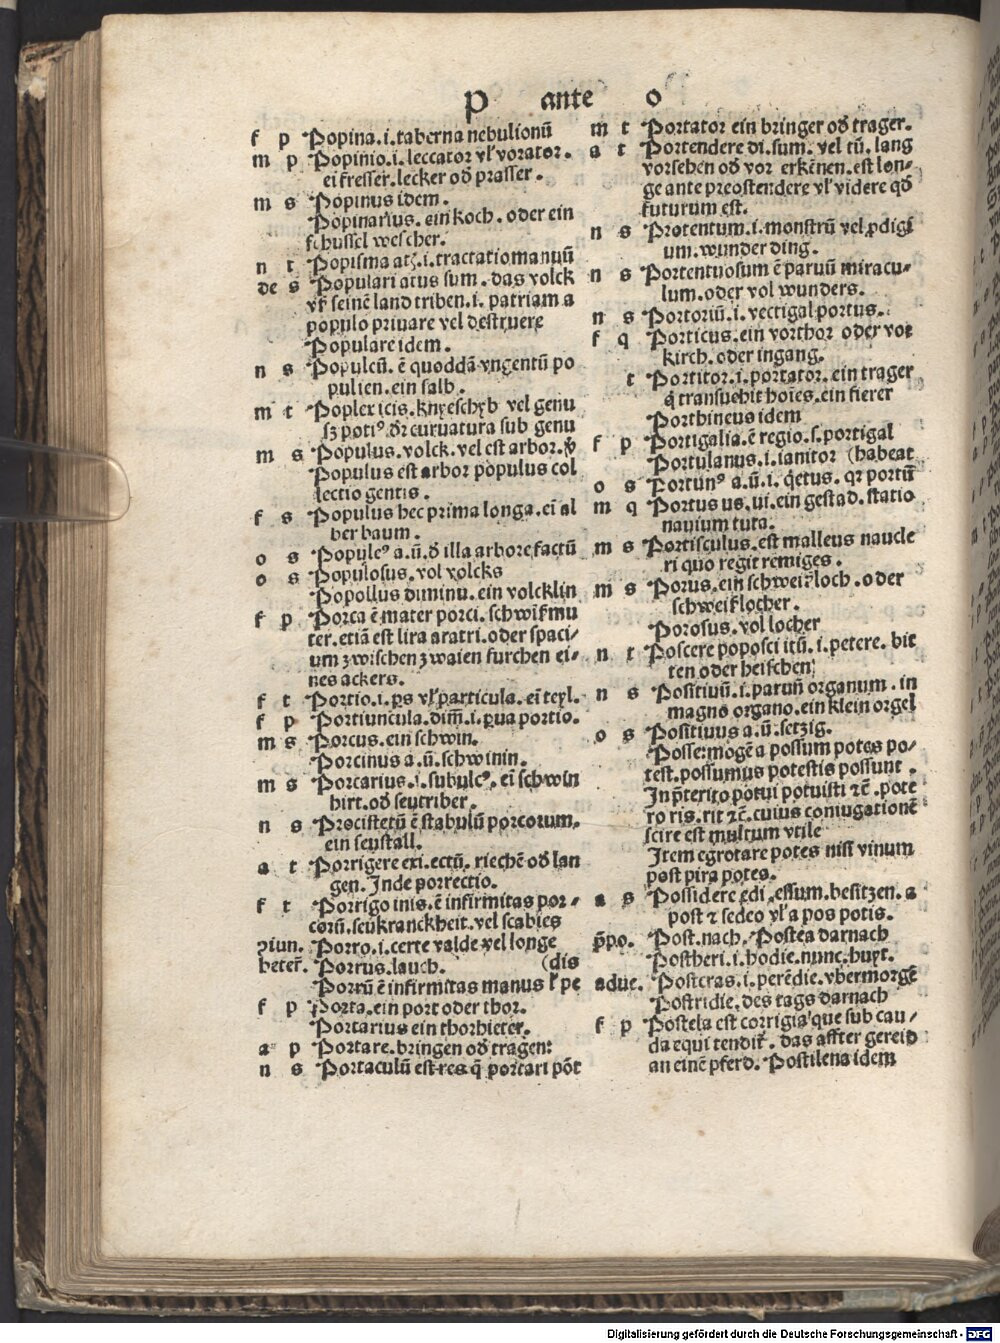 P ante o
f p Popina.i.taberna nebulionū
m p Popinio.i.leccator vl̓ vorator.
ei fresser.lecker od̓ prasser.
m s Popinus idem.
Popinarius.ein koch.oder ein
schussel wescher.
n t Popisma atꝫ.i.tractatio manuū
de s Populari atus sum.das volck
vß seinē land triben.i.patriam a
populo priuare vel destruere
Populare idem.
n s Populeū.ē quoddā vngentū po
pulien.ein salb.
m t Poplex icis.knyeschyb vel genu
sꝫ potiꝰ dr̄ curuatura sub genu
m s Populus.volck.vel est arbor.
Populus est arbor populus col
lectio gentis.
f s Populus hec prima longa.ei al
ber baum.
o s Populeꝰ a.ū.d̓ illa arbore factū
o s Populosus.vol volcks
Popollus diminu.ein volcklin
f p Porca ē mater porci.schwin mu
ter.etiā est lira aratri.oder spaci-
um zwischen zwaien furchen ei-
nes ackers.
f t Portio.i.ps vl̓ particula.ei teyl.
f p Portiuncula.dim̄.i.ꝑua portio.
m s Porcus.ein schwin.
Porcinus a.ū.schwinin.
m s Porcarius.i.subulcꝰ.ei schwin
hirt.od̓ seutriber.
n s Porcistetū ē stabulū porcorum.
ein seustall.
a t Porrigere exi.ectū.riechē od̓ lan
gen.Inde porrectio.
f t Porrigo inis.ē infirmitas por-
corū.seukranckheit.vel scabies
ꝯiun. Porro.i.certe valde vel longe
heter̄. Porrus.lauch. (dis
Porrū ē infirmitas manus l̓ pe
f p Porta.ein port oder thor.
Portarius ein thorhieter.
a p Portare.bringen od̓ tragen:
n s Portaculū est res q̄ portari pōt
m t Portator ein bringer od̓ trager.
a t Portendere di.sum.vel tū.lang
vorsehen od̓ vor erkēnen.est lon-
ge ante preostendere vl̓ videre qd̓
futurum est.
n s Protentum.i.monstrū vel ꝓdigi
um.wunder ding.
n s Portentuosum ē paruū miracu-
lum.oder vol wunders.
n s Portoriū.i.vectigal portus.
f q Porticus.ein vorthor oder vor
kirch.oder ingang.
t Portitor.i.portator.ein trager
q̓ transuehit hoīes.ein fierer
Porthineus idem
f p Portigalia.ē regio.s.portigal
Portulanus.i.ianitor (habeat
o s Portunꝰ a.ū.i.q̓etus.qr portū
m q Portus us.ui.ein gestad.statio
nauium tuta.
m s Portisculus.est malleus naucle
ri quo regit remiges.
m s Porus.ein schweißloch.oder
schweißlocher.
Porosus.vol locher
n t Poscere poposci itū.i.petere.bit
ten oder heischen;
n s Positiuū.i.paruū organum.in
magno organo.ein klein orgel
o s Positiuus a.ū.setzig.
Posse:mogē a possum potes po-
test.possumus potestis possunt.
In p̄terito potui potuisti ⁊c̄.pote
ro ris.rit ⁊c̄.cuius coniugationē
scire est multum vtile
Item egrotare potes nisi vinum
post pira potes.
a s Possidere edi.essum.besitzen.a
post ⁊ sedeo vl̓ a pos potis.
p̄po. Post.nach.Postea darnach
Postheri.i.hodie.nunc.huyt.
adue. Postcras.i.perēdie.vbermorgē
Postridie.des tags darnach
f p Postela est corrigia que sub cau-
da equi tendit̄.das affter gereid
an einē pferd.Postilena idem
Digitalisierung gefördert durch die Deutsche Forschungsgemeinschaft - DFG